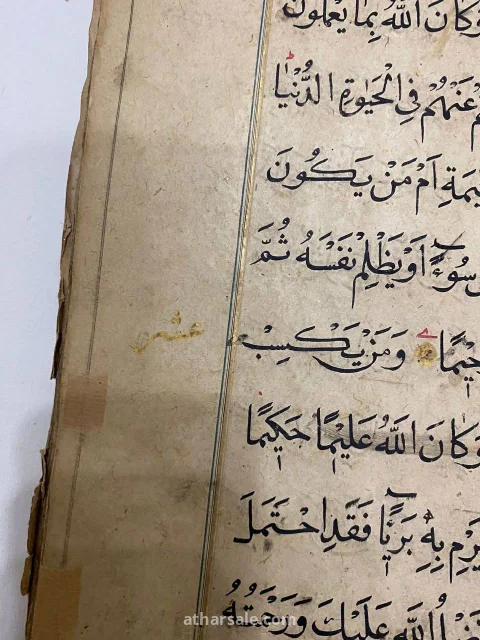 وَكَانَ اللّٰهُ بِمَا يَعْمَلُونَ
عَنْهُمْ فِي الْحَيٰوةِ الدُّنْيَا
يٰمَةِ اَمْ مَنْ يَكُونُ
سُوْءًا اَوْ يَظْلِمْ نَفْسَهُ ثُمَّ
حِيْمًا وَمَنْ يَكْسِبْ
عشر
وَكَانَ اللّٰهُ عَلِيْمًا حَكِيْمًا
يَرْمِ بِهِ بَرِيًّا فَقَدِ احْتَمَلَ
اللّٰهِ عَلَيْكَ وَرَحْمَتُهُ
atharsale.com